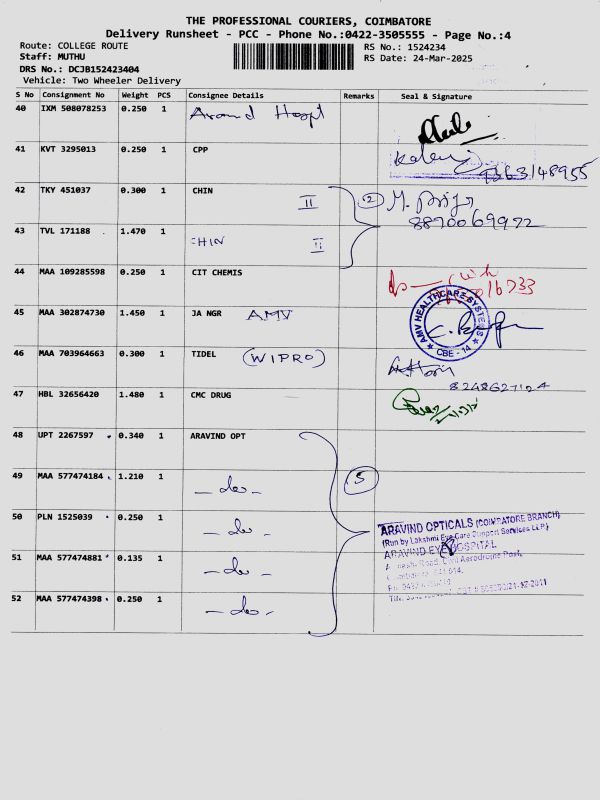 THE PROFESSIONAL COURIERS, COIMBATORE
Delivery Runsheet - PCC - Phone No.:0422-3505555 - Page No.:4
Route: COLLEGE ROUTE
RS No.: 1524234
Staff: MUTHU
RS Date: 24-Mar-2025
DRS No.: DCJB152423404
Vehicle: Two Wheeler Delivery
S No Consignment No Weight PCS Consignee Details Remarks Seal & Signature
40 IXM 508078253 0.250 1
41 KVT 3295013 0.250 1 CPP
9363148955
42 TKY 451037 0.300 1 CHIN II 2
8870069972
43 TVL 171188 1.470 1 CHIN II
44 MAA 109285598 0.250 1 CIT CHEMIS
45 MAA 302874730 1.450 1 JA NGR AMV
AMV HEALTHCARE SYSTEMS
CBE - 14
46 MAA 703964663 0.300 1 TIDEL (WIPRO)
47 HBL 32656420 1.480 1 CMC DRUG
48 UPT 2267597 0.340 1 ARAVIND OPT
49 MAA 577474184 1.210 1 - do - 5
50 PLN 1525039 0.250 1 - do -
ARAVIND OPTICALS (COIMBATORE BRANCH)
(Run by Lakshmi Eye Care Support Services LLP)
ARAVIND EYE HOSPITAL
51 MAA 577474881 0.135 1 - do -
Road, Civil Aerodrome Post,
52 MAA 577474398 0.250 1 - do -